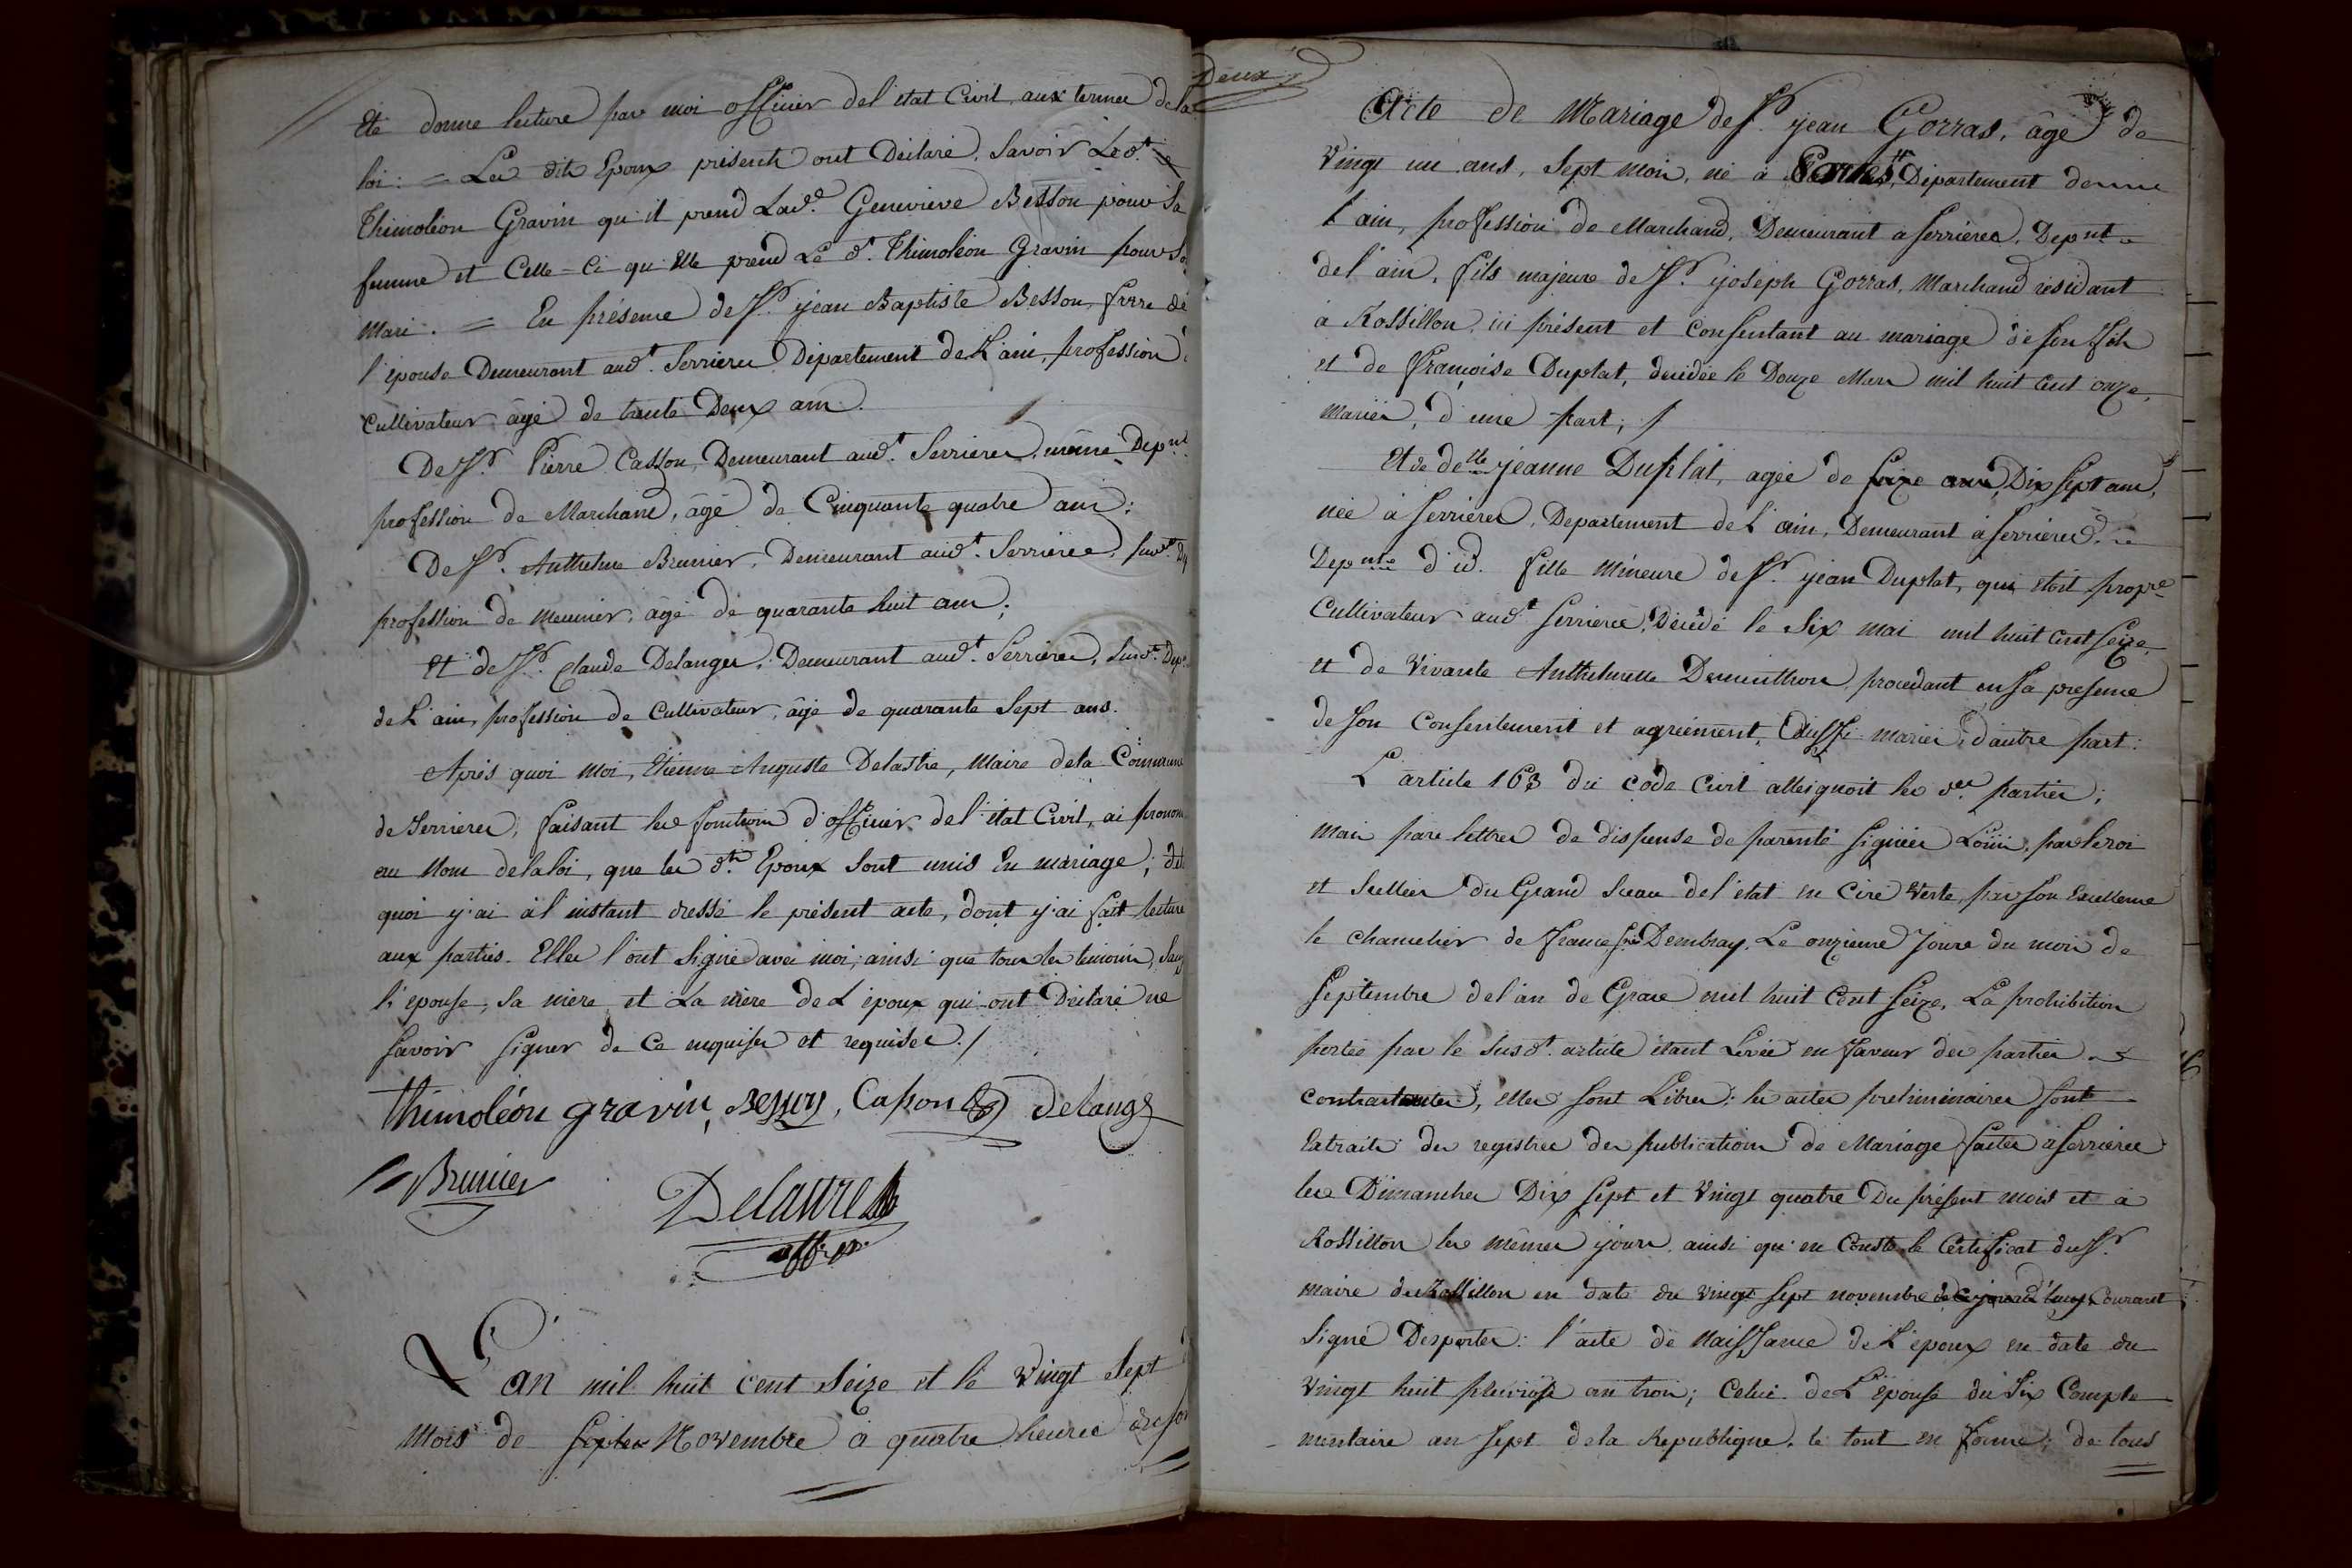 Eté donné lecture par moi officier de l'état Civil, aux termes de la
loi: = Les dits Epoux présents ont Déclaré, Savoir Led.t
Thimoléon Gravin qu'il prend Lad.e Geneviève Besson pour Sa
femme et Celle-Ci qu'Elle prend Le d.t Thimoléon Gravin pour So
Mari. = En présence de S.r jean Baptiste Besson, frere de
l'épouse Demeurant aud.t Serrieres Département de L'ain, profession
Cultivateur âgé de trente Deux ans.
De S.r Pierre Casson, Demeurant aud.t Serrieres, même Dep.nt
profession de Marchand, âgé de Cinquante quatre ans;
De S.r Anthelme Brunier, Demeurant aud.t Serrieres, susd.t
profession de meunier, âgé de quarante huit ans;
Et de S.r Claude Delanges, Demeurant aud.t Serrieres, Susd.t Dep.
de L'ain, profession de Cultivateur, âgé de quarante Sept ans.
Après quoi Moi, Etienne Auguste Delastre, Maire de la Commune
de Serrieres, faisant les fonctions d'officier de l'état Civil, ai pronon
au Nom de la loi, que les d.ts Epoux Sont unis En mariage; de
quoi j'ai à l'instant dressé le présent acte, dont j'ai fait lecture
aux parties. Elles l'ont Signé avec moi, ainsi que tous les temoins, Sauf
l'épouse, Sa mère et La mère de L'époux qui ont Déclaré ne
Savoir Signer de Ce enquises et requises./
thimoléon gravin, Besson, Cason Delange
Brunier
Delastre
L'an mil huit cent Seize et le Vingt Sept
Mois de Septem Novembre à quatre heures du soi
Deux
Acte de Mariage de S.r jean Gorras, âgé de
Vingt un ans, Sept mois, né à Département
L'ain, profession de Marchand, Demeurant à Serrieres, Dep.nt
de l'ain, fils majeure de S.r joseph Gorras, Marchand résidant
à Rossillon, ici présent et Consentant au mariage de son fils
et de françoise Duplat, décédée le Douze Mars mil huit Cent onze,
mariés, d'une part; /
Et de de.lle jeanne Duplat, agée de seize ans, Dix sept ans,
née à Serrieres, Departement de L'ain, Demeurant à Serrieres,
Dep.nt d'id. fille Mineure de S.r jean Duplat, qui étoit prop.re
Cultivateur aud.t Serrieres, Décédé le Six mai mil huit Cent Seize,
et de Vivante Anthelmette Dementhon, procédant en Sa presence
de Son Consentement et agrément, Aussi mariés, d'autre part:
L'article 163 du Code Civil atteignoit les d.es parties;
Mais par lettres de dispense de parenté signées Louis, par le roi
et Scellées du Grand Sceau de l'état en Cire Verte, par Son Excellence
le chancelier de france Dembray, Le onzieme Joure du mois de
Septembre de l'an de Grace mil huit Cent Seize, La prohibition
portée par le Susd.t article étant Levée en faveur des parties
contractantes, elles sont Libres: les actes préliminaires sont
Extraits des registres des publications de Mariage faites à Serrieres
les Dimanches Dix sept et Vingt quatre Du présent mois et à
Rossillon les mêmes jours, ainsi qu'en Conste le Certificat du S.r
Maire de Rossillon en date du Vingt Sept novembre Courant
Signé Desportes: l'acte de Naissance de L'époux en date du
Vingt huit pluviôse an trois; Celui de L'épouse du Six Comple
mentaire an Sept de la Republique, le tout en forme; de tous